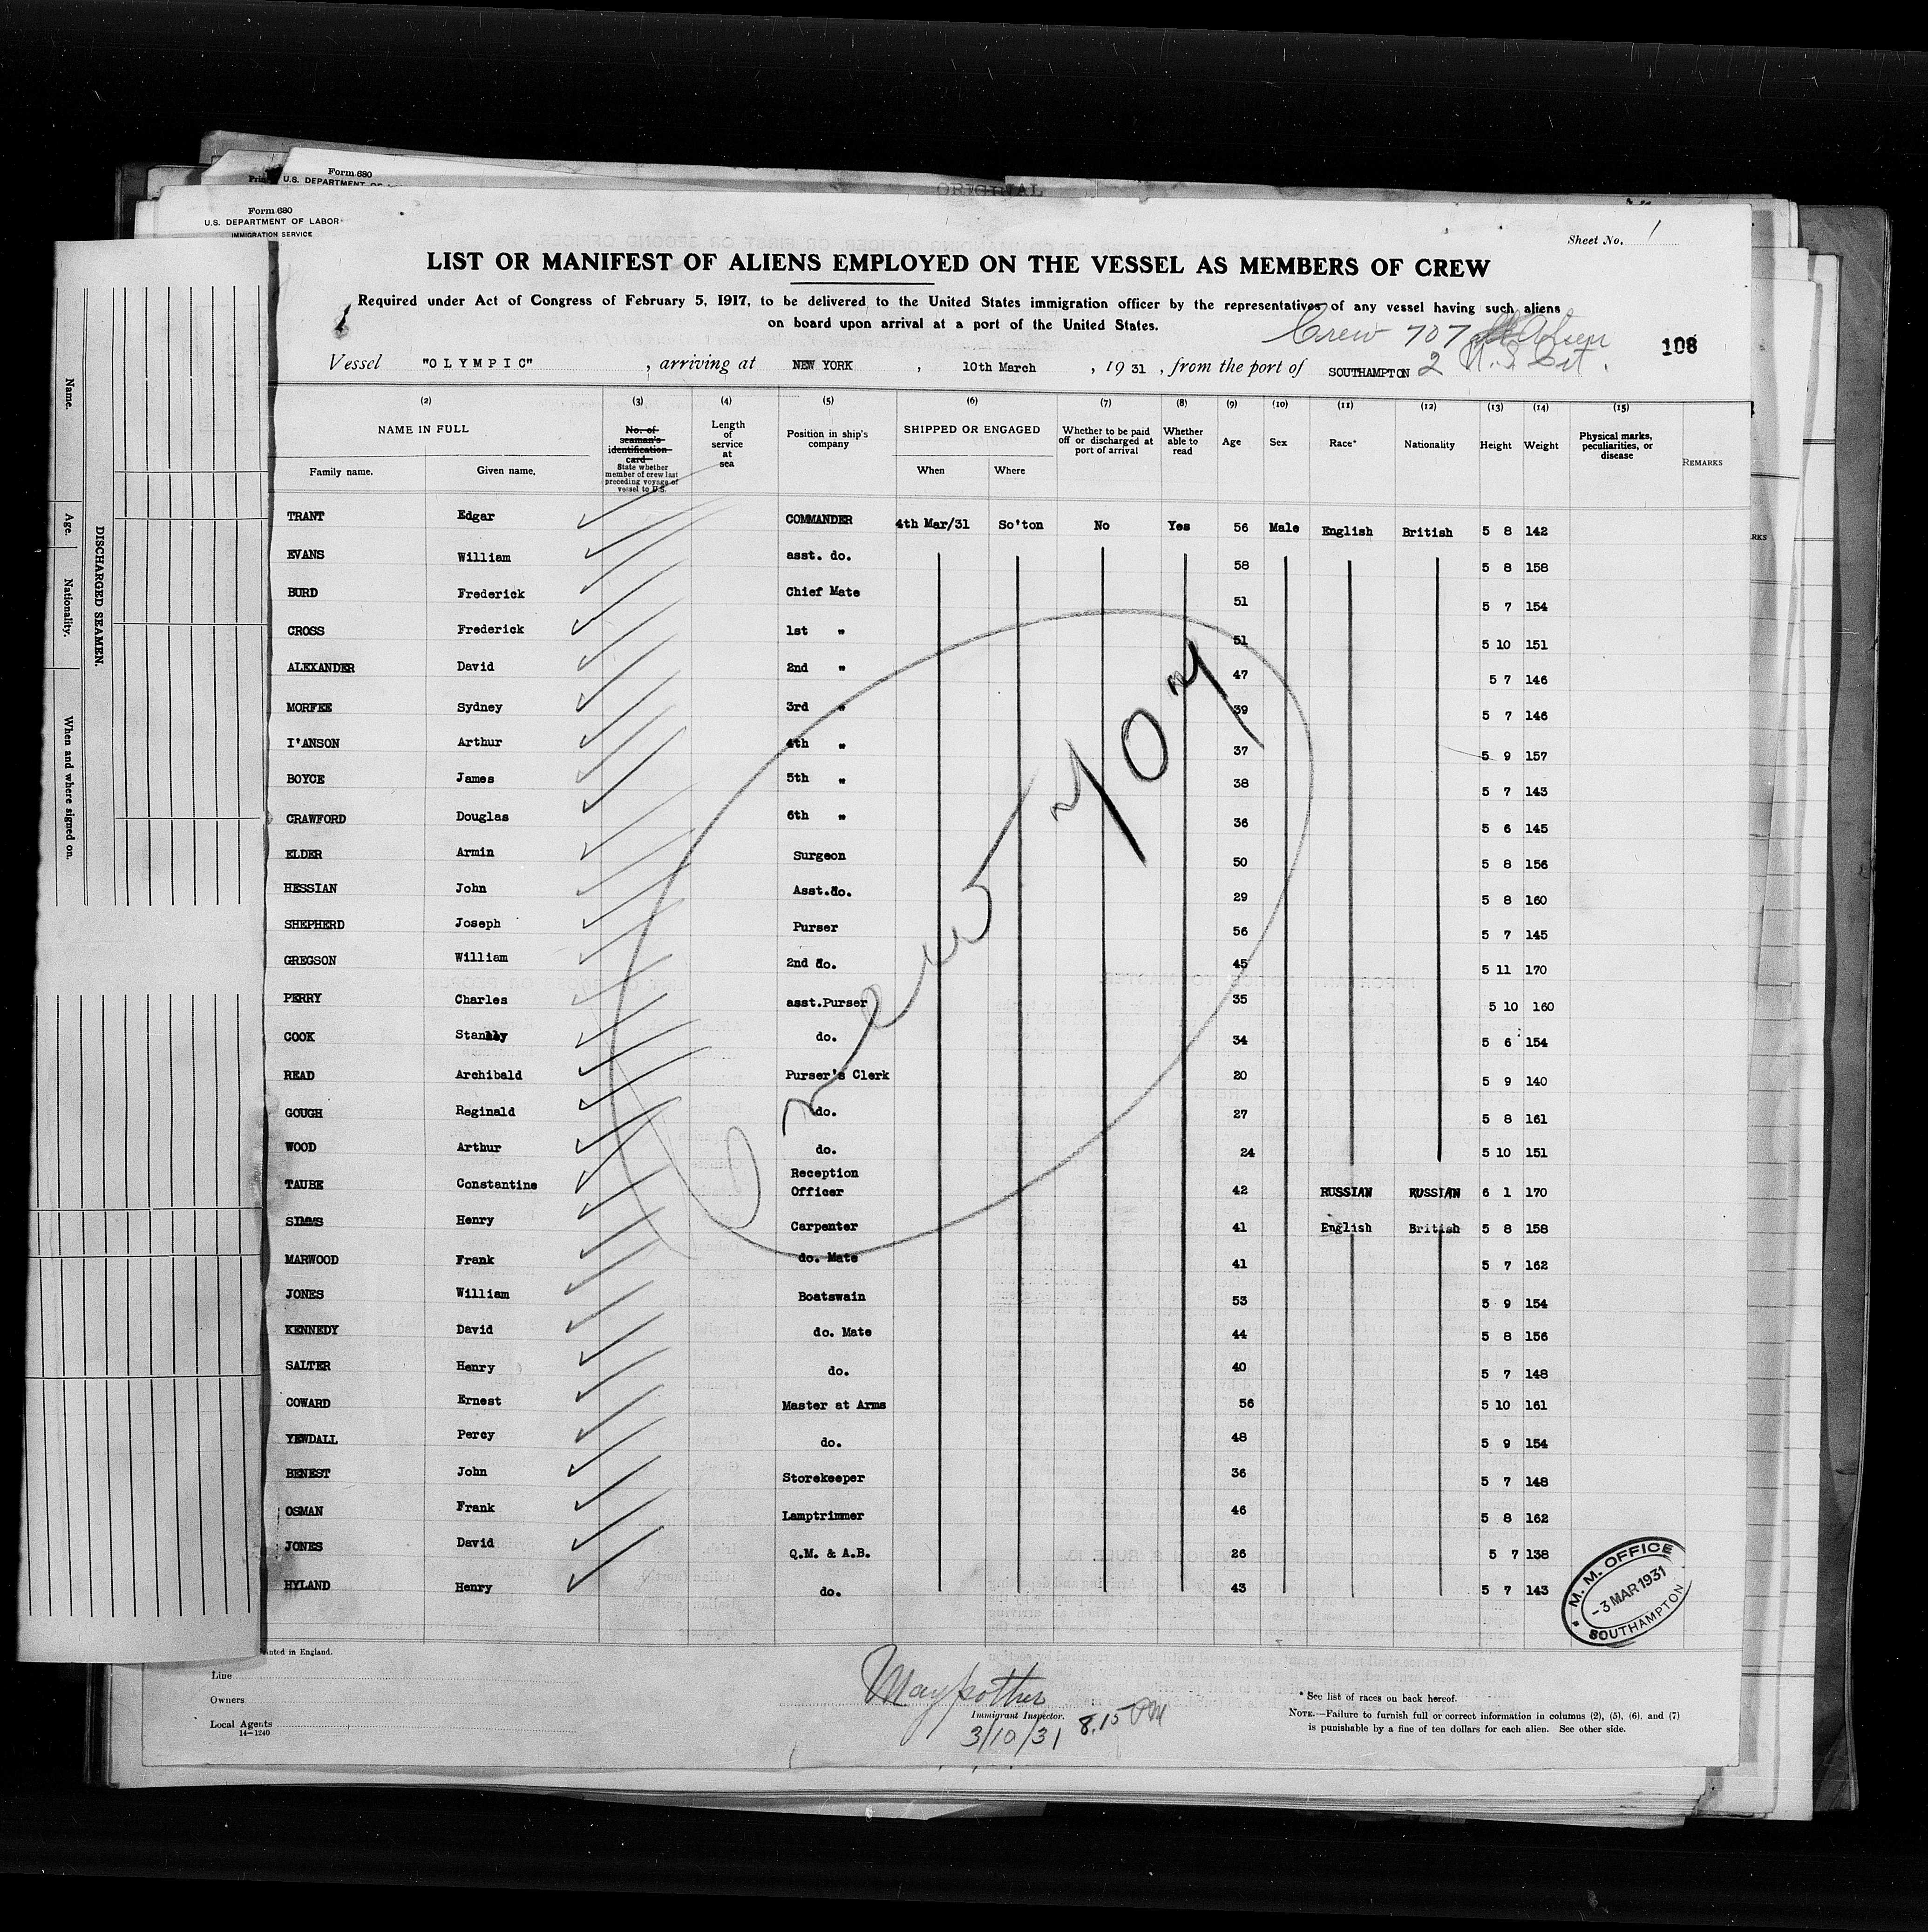 Form 680
U.S. DEPARTMENT OF
ORIGINAL
Form 680
U.S. DEPARTMENT OF LABOR
IMMIGRATION SERVICE
Sheet No. 1
LIST OR MANIFEST OF ALIENS EMPLOYED ON THE VESSEL AS MEMBERS OF CREW
Required under Act of Congress of February 5, 1917, to be delivered to the United States immigration officer by the representatives of any vessel having such aliens
on board upon arrival at a port of the United States.
Crew 707 Alien
2 U.S. Cit.
108
Vessel "OLYMPIC", arriving at NEW YORK, 10th March, 1931, from the port of SOUTHAMPTON
(2) (3) (4) (5) (6) (7) (8) (9) (10) (11) (12) (13) (14) (15)
NAME IN FULL
Family name. Given name.
No. of seaman's identification card
State whether member of crew last preceding voyage of vessel to U.S.
Length of service at sea
Position in ship's company
SHIPPED OR ENGAGED
When Where
Whether to be paid off or discharged at port of arrival
Whether able to read
Age Sex Race* Nationality Height Weight
Physical marks, peculiarities, or disease
REMARKS
TRANT Edgar COMMANDER 4th Mar/31 So'ton No Yes 56 Male English British 5 8 142
EVANS William asst. do. 58 5 8 158
BURD Frederick Chief Mate 51 5 7 154
CROSS Frederick 1st " 51 5 10 151
ALEXANDER David 2nd " 47 5 7 146
MORFEE Sydney 3rd " 39 5 7 146
I'ANSON Arthur 4th " 37 5 9 157
BOYCE James 5th " 38 5 7 143
CRAWFORD Douglas 6th " 36 5 6 145
ELDER Armin Surgeon 50 5 8 156
HESSIAN John Asst.do. 29 5 8 160
SHEPHERD Joseph Purser 56 5 7 145
GREGSON William 2nd do. 45 5 11 170
PERRY Charles asst.Purser 35 5 10 160
COOK Stanley do. 34 5 6 154
READ Archibald Purser's Clerk 20 5 9 140
GOUGH Reginald do. 27 5 8 161
WOOD Arthur do. 24 5 10 151
TAUBE Constantine Reception Officer 42 RUSSIAN RUSSIAN 6 1 170
SIMMS Henry Carpenter 41 English British 5 8 158
MARWOOD Frank do. Mate 41 5 7 162
JONES William Boatswain 53 5 9 154
KENNEDY David do. Mate 44 5 8 156
SALTER Henry do. 40 5 7 148
COWARD Ernest Master at Arms 56 5 10 161
YEWDALL Percy do. 48 5 9 154
BENEST John Storekeeper 36 5 7 148
OSMAN Frank Lamptrimmer 46 5 8 162
JONES David Q.M. & A.B. 26 5 7 138
HYLAND Henry do. 43 5 7 143
Crew 707
M.M. OFFICE
-3 MAR 1931
SOUTHAMPTON
DISCHARGED SEAMEN.
Name. Age. Nationality. When and where signed on.
Printed in England.
Line
Owners
Local Agents
14-1240
Immigrant Inspector.
3/10/31 8.15 PM
*See list of races on back hereof.
NOTE.—Failure to furnish full or correct information in columns (2), (5), (6), and (7)
is punishable by a fine of ten dollars for each alien. See other side.